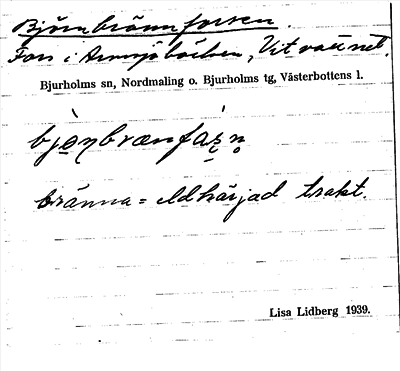 Björnbrännforsen.
Fors i Armsjöbäcken, Vitvattnet.
Bjurholms sn, Nordmaling o. Bjurholms tg, Västerbottens l.
bränna = eldhärjad trakt.
Lisa Lidberg 1939.